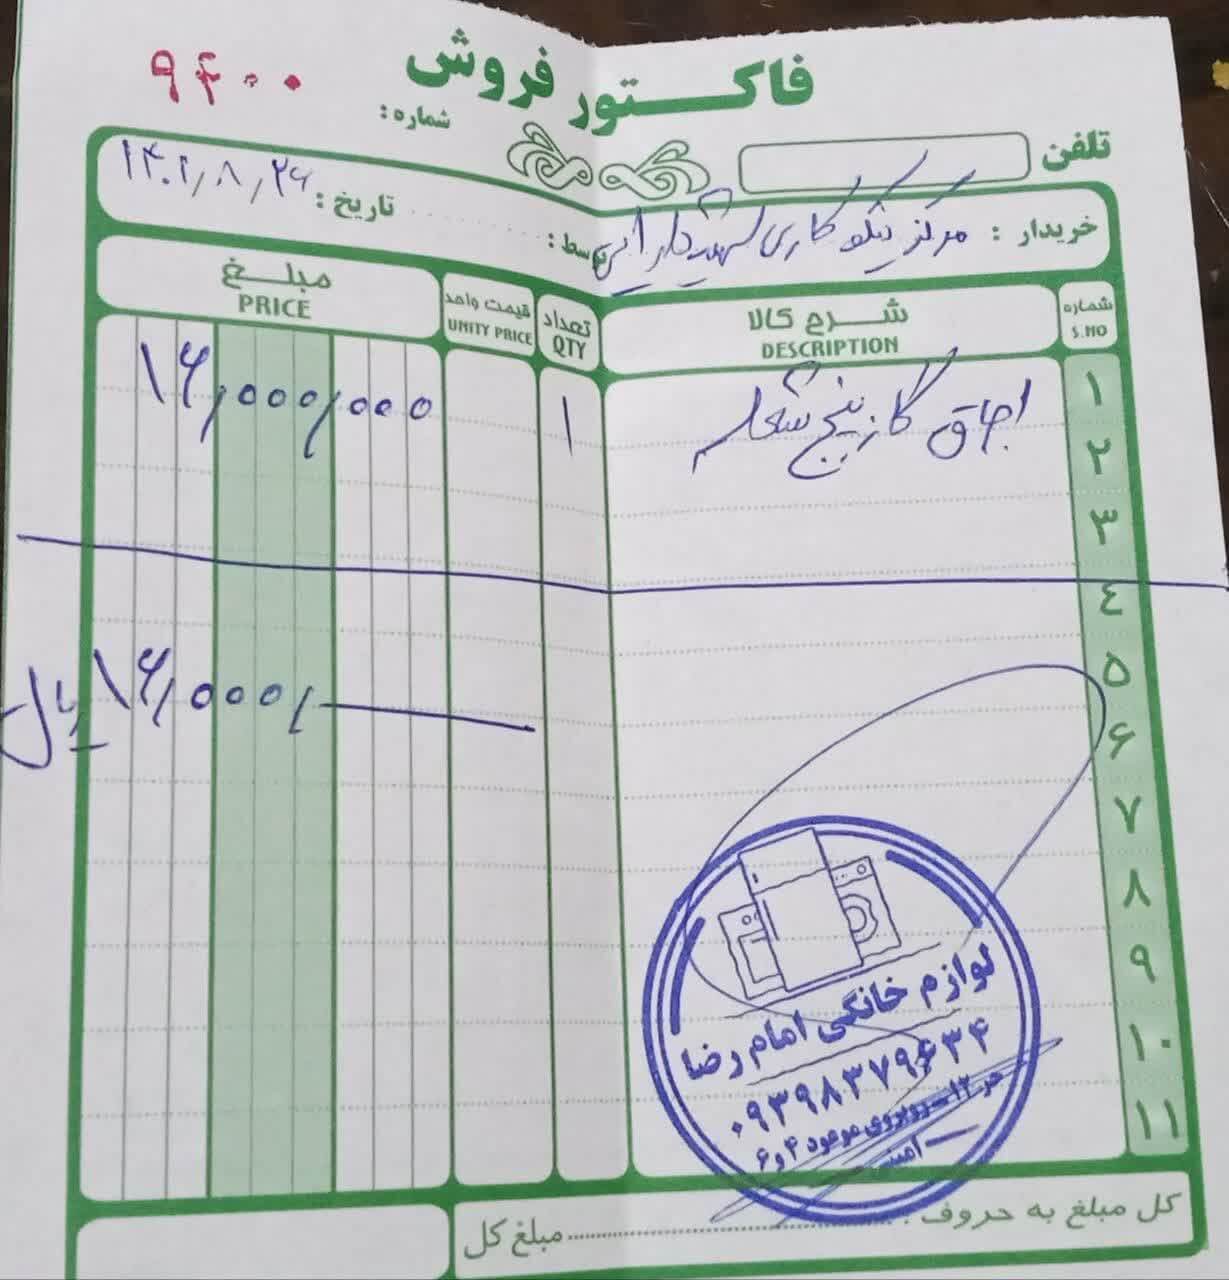 فاکتور فروش
شماره: ۹۴۰۰
تلفن
تاریخ: ۱۴۰۲,۸,۲۶
خریدار: مرکز نیکوکاری شهید دارابی
توسط:
شماره S.NO
شرح کالا DESCRIPTION
تعداد QTY
قیمت واحد UNITY PRICE
مبلغ PRICE
۱ اجاق گاز پنج شعله ۱ ۱۶,۰۰۰,۰۰۰
۲
۳
٤
۵
۱۶,۰۰۰,ــــ ریال
۶
۷
۸
۹
۱۰
۱۱
لوازم خانگی امام رضا
۰۹۳۹۸۳۷۹۶۳۴
حر ۱۲ - روبروی موعود ۴ و ۶
امینی
کل مبلغ به حروف:
مبلغ کل